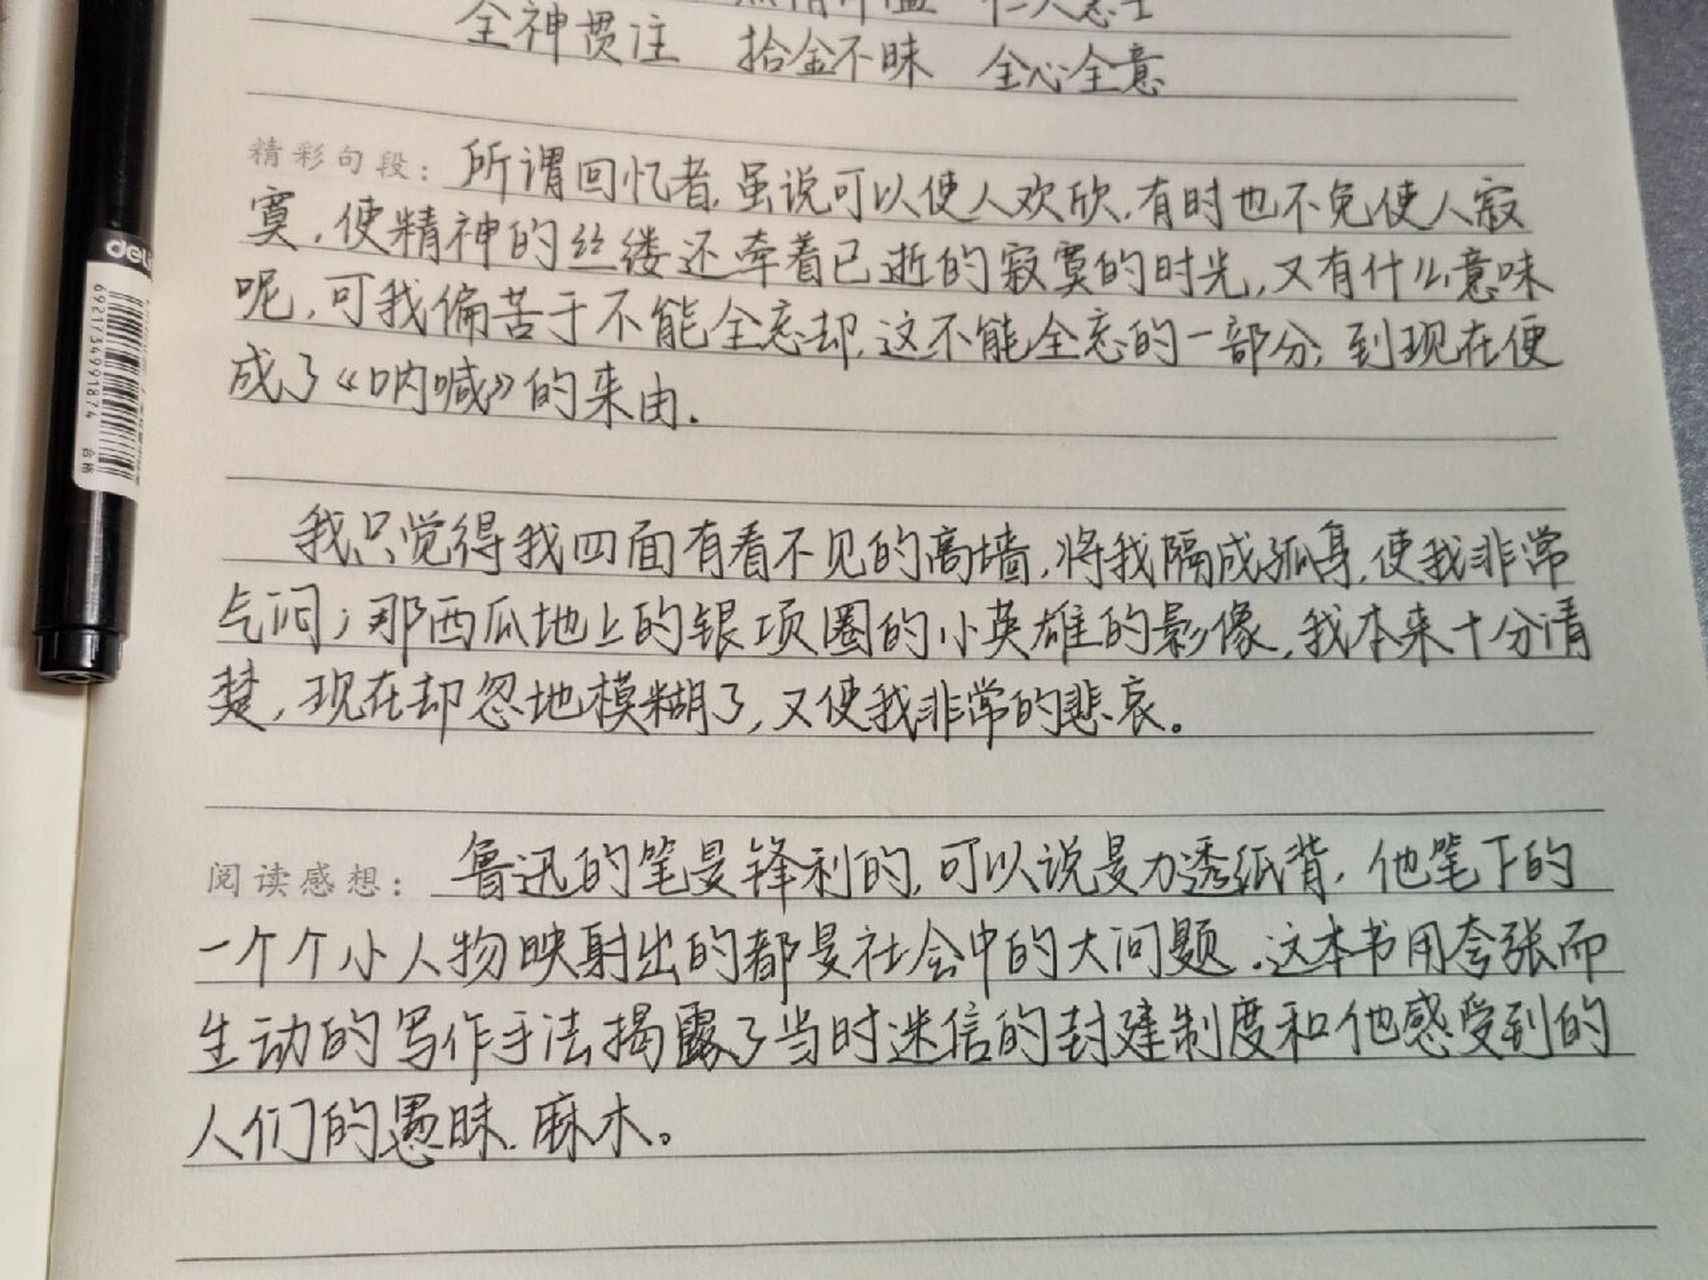 仁人志士
全神贯注 拾金不昧 全心全意
精彩句段：所谓回忆者,虽说可以使人欢欣,有时也不免使人寂
寞,使精神的丝缕还牵着已逝的寂寞的时光,又有什么意味
呢,可我偏苦于不能全忘却,这不能全忘的一部分,到现在便
成了《呐喊》的来由.
我只觉得我四面有看不见的高墙,将我隔成孤身,使我非常
气闷;那西瓜地上的银项圈的小英雄的影像,我本来十分清
楚,现在却忽地模糊了,又使我非常的悲哀。
阅读感想：鲁迅的笔是锋利的,可以说是力透纸背,他笔下的
一个个小人物映射出的都是社会中的大问题.这本书用夸张而
生动的写作手法揭露了当时迷信的封建制度和他感受到的
人们的愚昧.麻木。
deli
6921734991874
合格